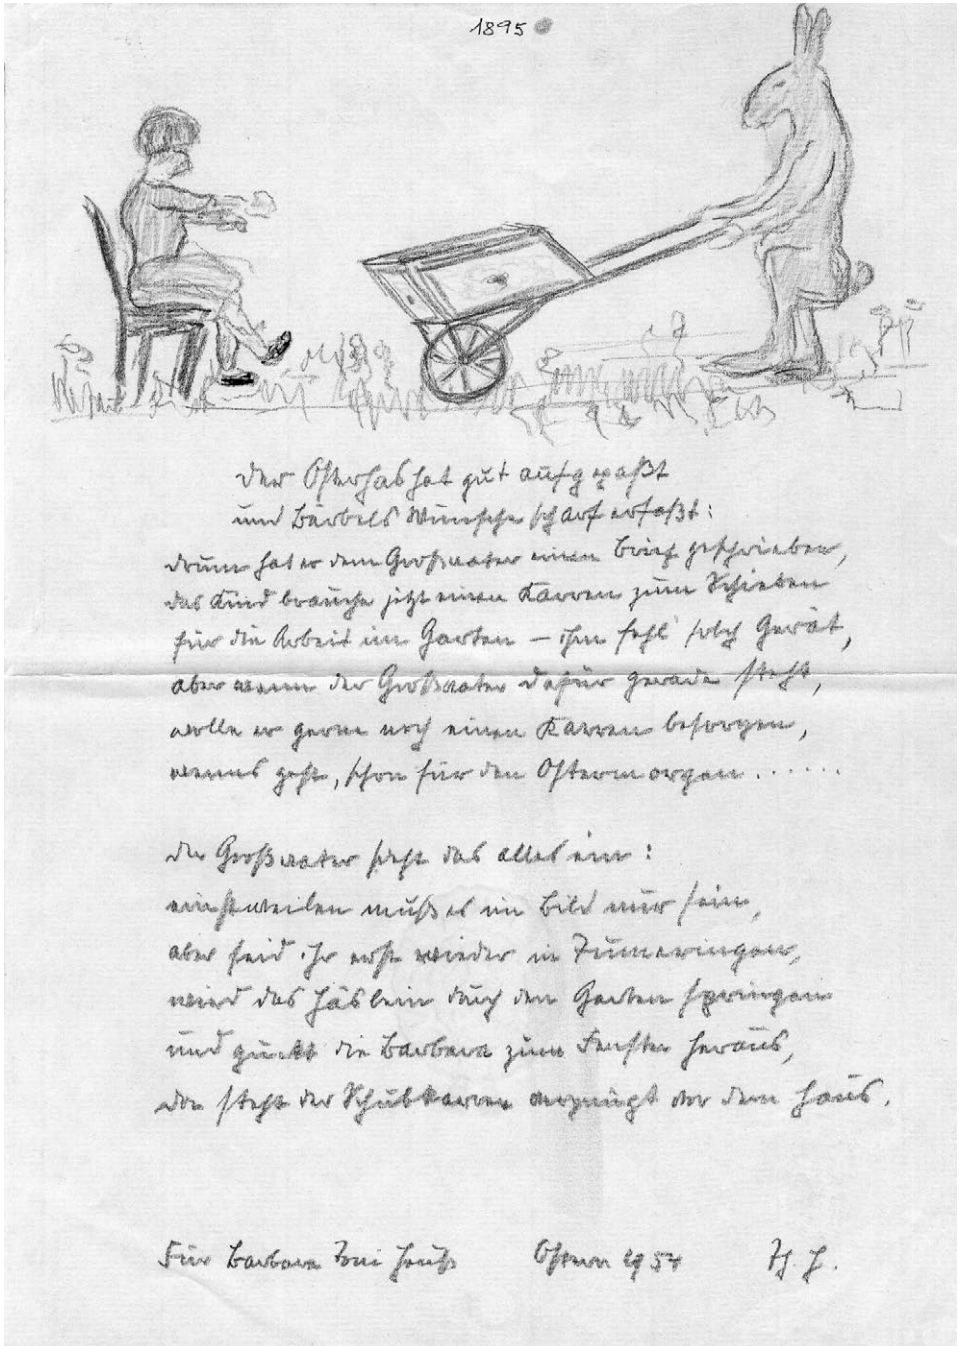 1895
Der Osterhas hat gut aufgepaßt
und Bärbels Wünsche scharf erfaßt:
drum hat er dem Großvater einen Brief geschrieben,
das Kind brauche jetzt einen Karren zum Schieben
für die Arbeit im Garten – ihm fehl' solch Gerät,
aber wenn der Großvater dafür gerade steht,
wolle er gerne noch einen Karren besorgen,
wenns geht, schon für den Ostermorgen . . . . . .
Der Großvater sieht das alles ein:
einstweilen muß es im Bild nur sein,
aber seid Ihr erst wieder in
wird das Häslein durch den Garten springen
und guckt die Barbara zum Fenster heraus,
da steht der Schubkarren vergnügt vor dem Haus.
Für Barbara Toni Heuss Ostern 1954 Th. H.